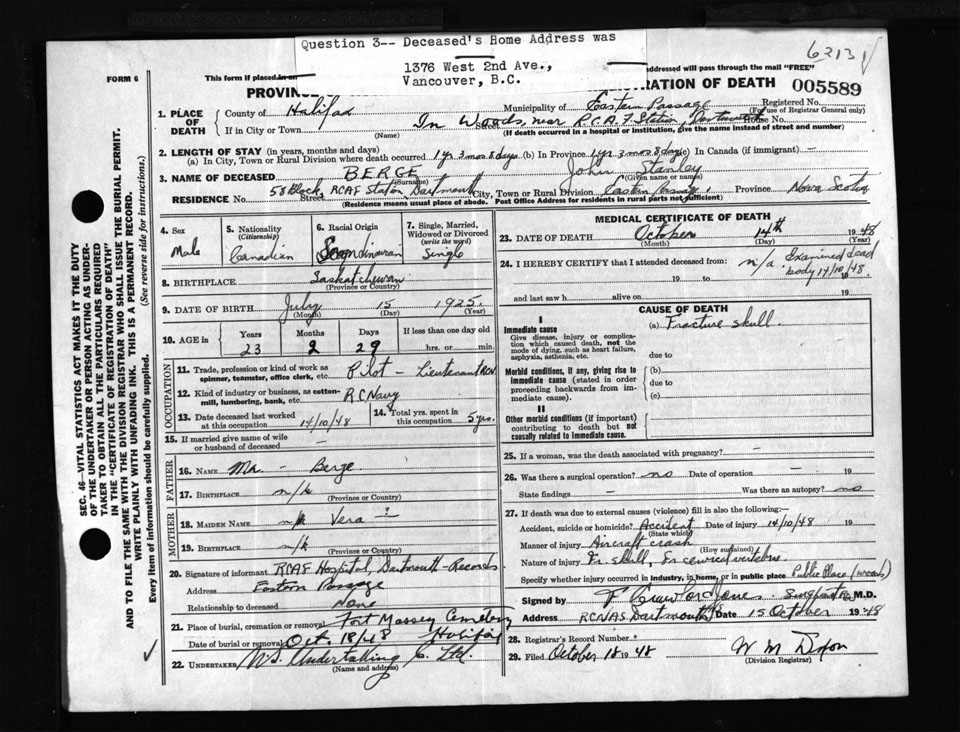 Question 3-- Deceased's Home Address was
1376 West 2nd Ave.,
Vancouver, B.C.
62131
FORM 6
This form if placed in an
addressed will pass through the mail "FREE"
PROVINC
RATION OF DEATH
005589
1. PLACE OF DEATH
County of Halifax
Municipality of Eastern Passage
Registered No.
(For use of Registrar General only)
If in City or Town
(Name)
In Woods, near R.C.A.F Station, Dartmouth
Street
House No.
(If death occurred in a hospital or institution, give the name instead of street and number)
2. LENGTH OF STAY (in years, months and days)
(a) In City, Town or Rural Division where death occurred 1 yr 3 mos 8 days (b) In Province 1 yr 3 mos 8 days (c) In Canada (if immigrant) -
3. NAME OF DECEASED BERGE John Stanley
(Surname) (Given name or names)
RESIDENCE No. 58 Block, RCAF Station, Dartmouth Street City, Town or Rural Division Eastern Passage, Province Nova Scotia
(Residence means usual place of abode. Post Office Address for residents in rural parts not sufficient)
4. Sex
Male
5. Nationality
(Citizenship)
Canadian
6. Racial Origin
Scandinavian
7. Single, Married, Widowed or Divorced
(write the word)
Single
8. BIRTHPLACE Saskatchewan
(Province or Country)
9. DATE OF BIRTH July 15 1925
(Month) (Day) (Year)
10. AGE in
Years Months Days If less than one day old
23 2 29 hrs. or min.
OCCUPATION
11. Trade, profession or kind of work as
spinner, teamster, office clerk, etc. Pilot - Lieutenant RCN.
12. Kind of industry or business, as cotton-
mill, lumbering, bank, etc. RC Navy
13. Date deceased last worked
at this occupation 14/10/48
14. Total yrs. spent in
this occupation 5 yrs.
15. If married give name of wife
or husband of deceased -
FATHER
16. NAME Mr. - Berge
17. BIRTHPLACE n/k
(Province or Country)
MOTHER
18. MAIDEN NAME n/k Vera ?
19. BIRTHPLACE n/k
(Province or Country)
20. Signature of informant RCAF Hospital, Dartmouth - Records
Address Eastern Passage
Relationship to deceased None
21. Place of burial, cremation or removal Fort Massey Cemetery
Date of burial or removal Oct. 18/48 Halifax
22. UNDERTAKER NS. Undertaking C. Ltd
(Name and address)
MEDICAL CERTIFICATE OF DEATH
23. DATE OF DEATH October 14th 1948
(Month) (Day) (Year)
24. I HEREBY CERTIFY that I attended deceased from: n/a Examined dead
body 14/10/48.
19 to 19
and last saw h alive on 19
CAUSE OF DEATH
I
Immediate cause
Give disease, injury or complica-
tion which caused death, not the
mode of dying, such as heart failure,
asphyxia, asthenia, etc.
(a) Fracture skull.
due to
Morbid conditions, if any, giving rise to
immediate cause (stated in order
proceeding backwards from im-
mediate cause).
(b)
due to
(c)
II
Other morbid conditions (if important)
contributing to death but not
causally related to immediate cause.
25. If a woman, was the death associated with pregnancy? -
26. Was there a surgical operation? no Date of operation - 19
State findings - Was there an autopsy? no
27. If death was due to external causes (violence) fill in also the following:-
Accident, suicide or homicide? Accident Date of injury 14/10/48 19
(State which)
Manner of injury Aircraft crash
(How sustained)
Nature of injury Fr. skull, Fr cervical vertebrae.
Specify whether injury occurred in industry, in home, or in public place Public Place (woods)
Signed by F Crawford Jones - M.D.
Address RCNAS Dartmouth Date 15 October 1948
28. Registrar's Record Number
29. Filed October 18 1948 W M Dixon
(Division Registrar)
SEC. 46—VITAL STATISTICS ACT MAKES IT THE DUTY
OF THE UNDERTAKER OR PERSON ACTING AS UNDER-
TAKER TO OBTAIN ALL THE PARTICULARS REQUIRED
IN THE "CERTIFICATE OF REGISTRATION OF DEATH"
AND TO FILE THE SAME WITH THE DIVISION REGISTRAR WHO SHALL ISSUE THE BURIAL PERMIT.
WRITE PLAINLY WITH UNFADING INK. THIS IS A PERMANENT RECORD.
Every item of Information should be carefully supplied. (See reverse side for instructions.)